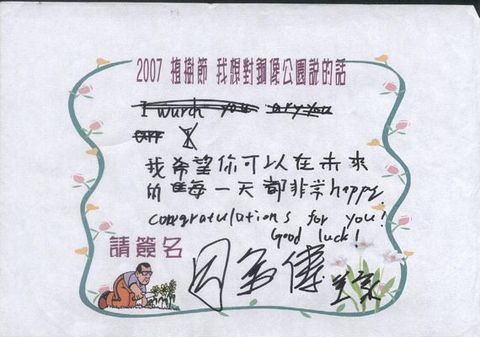 2007 植樹節 我想對銅像公園說的話
I wurch you
我希望你可以在未來
的每一天都非常happy
congratulations for you!
Good luck!
請簽名